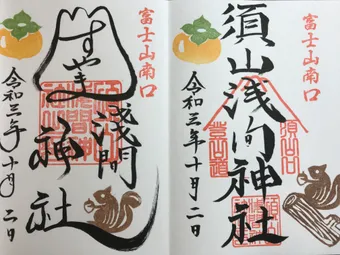 富士山南口
須山浅間神社
令和三年十月二日
富士山南口
すやま
淺間
神社
令和三年十月二日